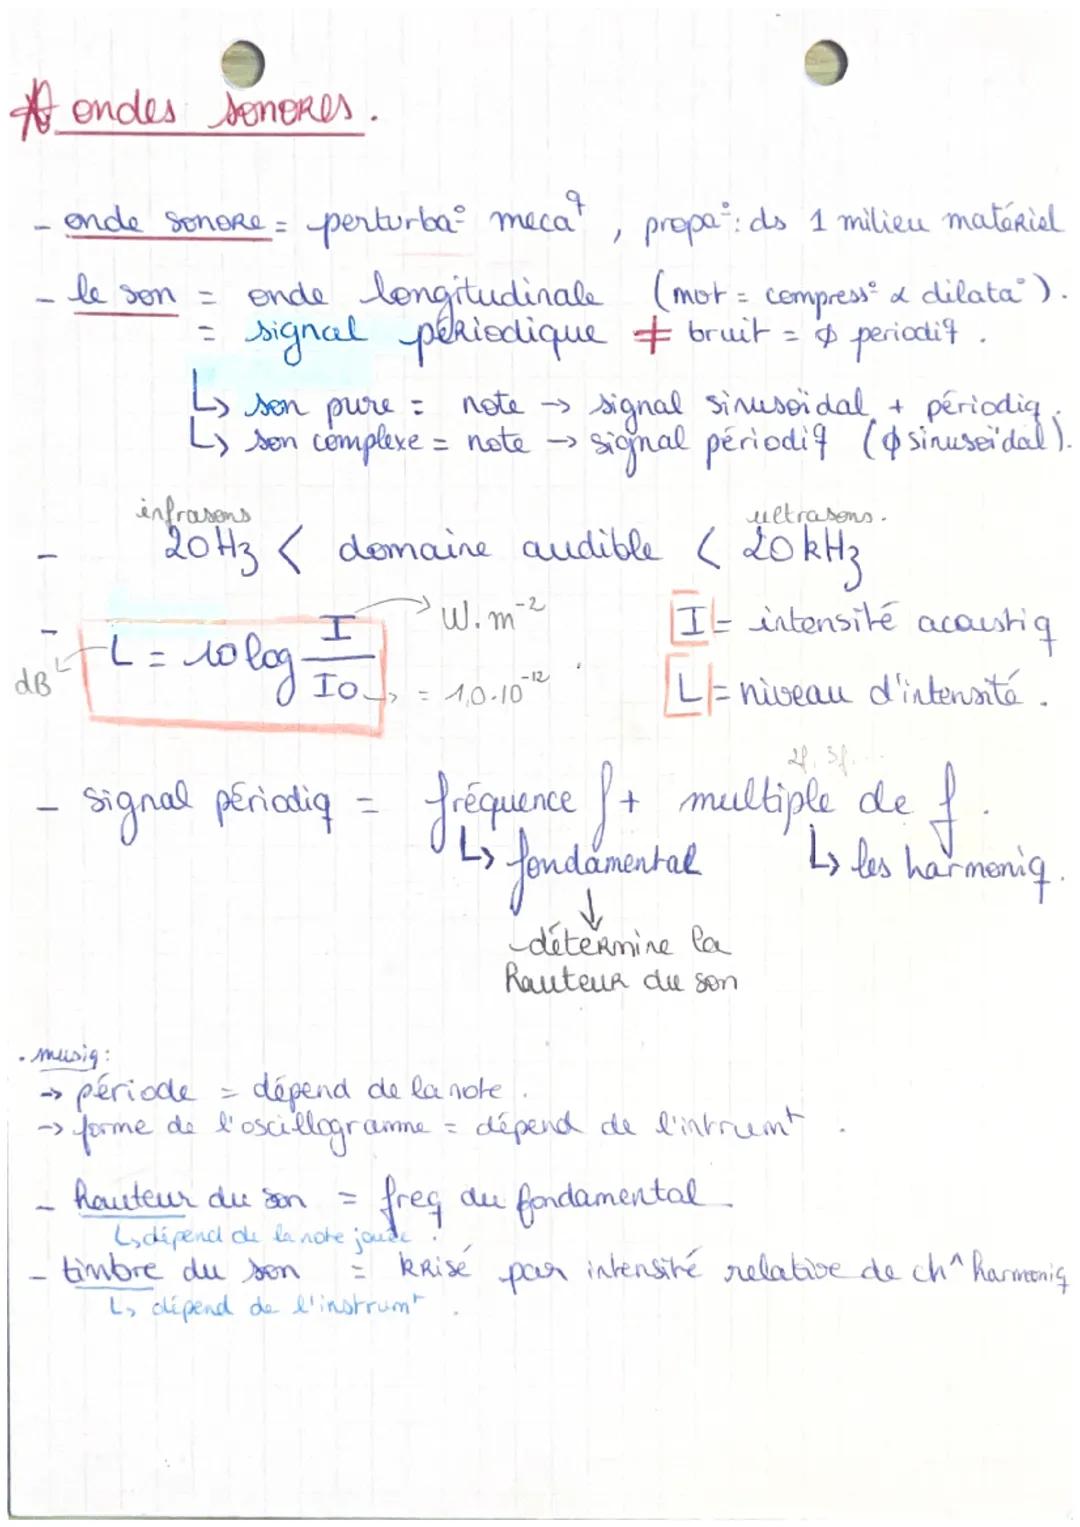 ondes sonores.
- onde sonore = perturba° meca^q, propa°: ds 1 milieu matériel
- le son = onde longitudinale (mot = compress° & dilata°).
= signal périodique ≠ bruit = ∅ periodiq.
↳ son pure = note → signal sinusoïdal + périodiq.
↳ son complexe = note → signal périodiq (∅ sinusoïdal).
infrasons ultrasons.
- 20 Hz < domaine audible < 20 kHz
- L = 10 log I/I0 → W.m^-2 I = intensité acoustiq
dB → = 1,0.10^-12 L = niveau d'intensité.
2f, 3f...
- signal périodiq = fréquence f + multiple de f.
↳ fondamental ↳ les harmoniq.
↓
détermine la
hauteur du son
. musiq:
→ période = dépend de la note.
→ forme de l'oscillogramme = dépend de l'intrum^t.
- hauteur du son = freq du fondamental
↳ dépend de la note jouée.
- timbre du son = krisé par intensité relative de ch^ harmoniq
↳ dépend de l'instrum^t.